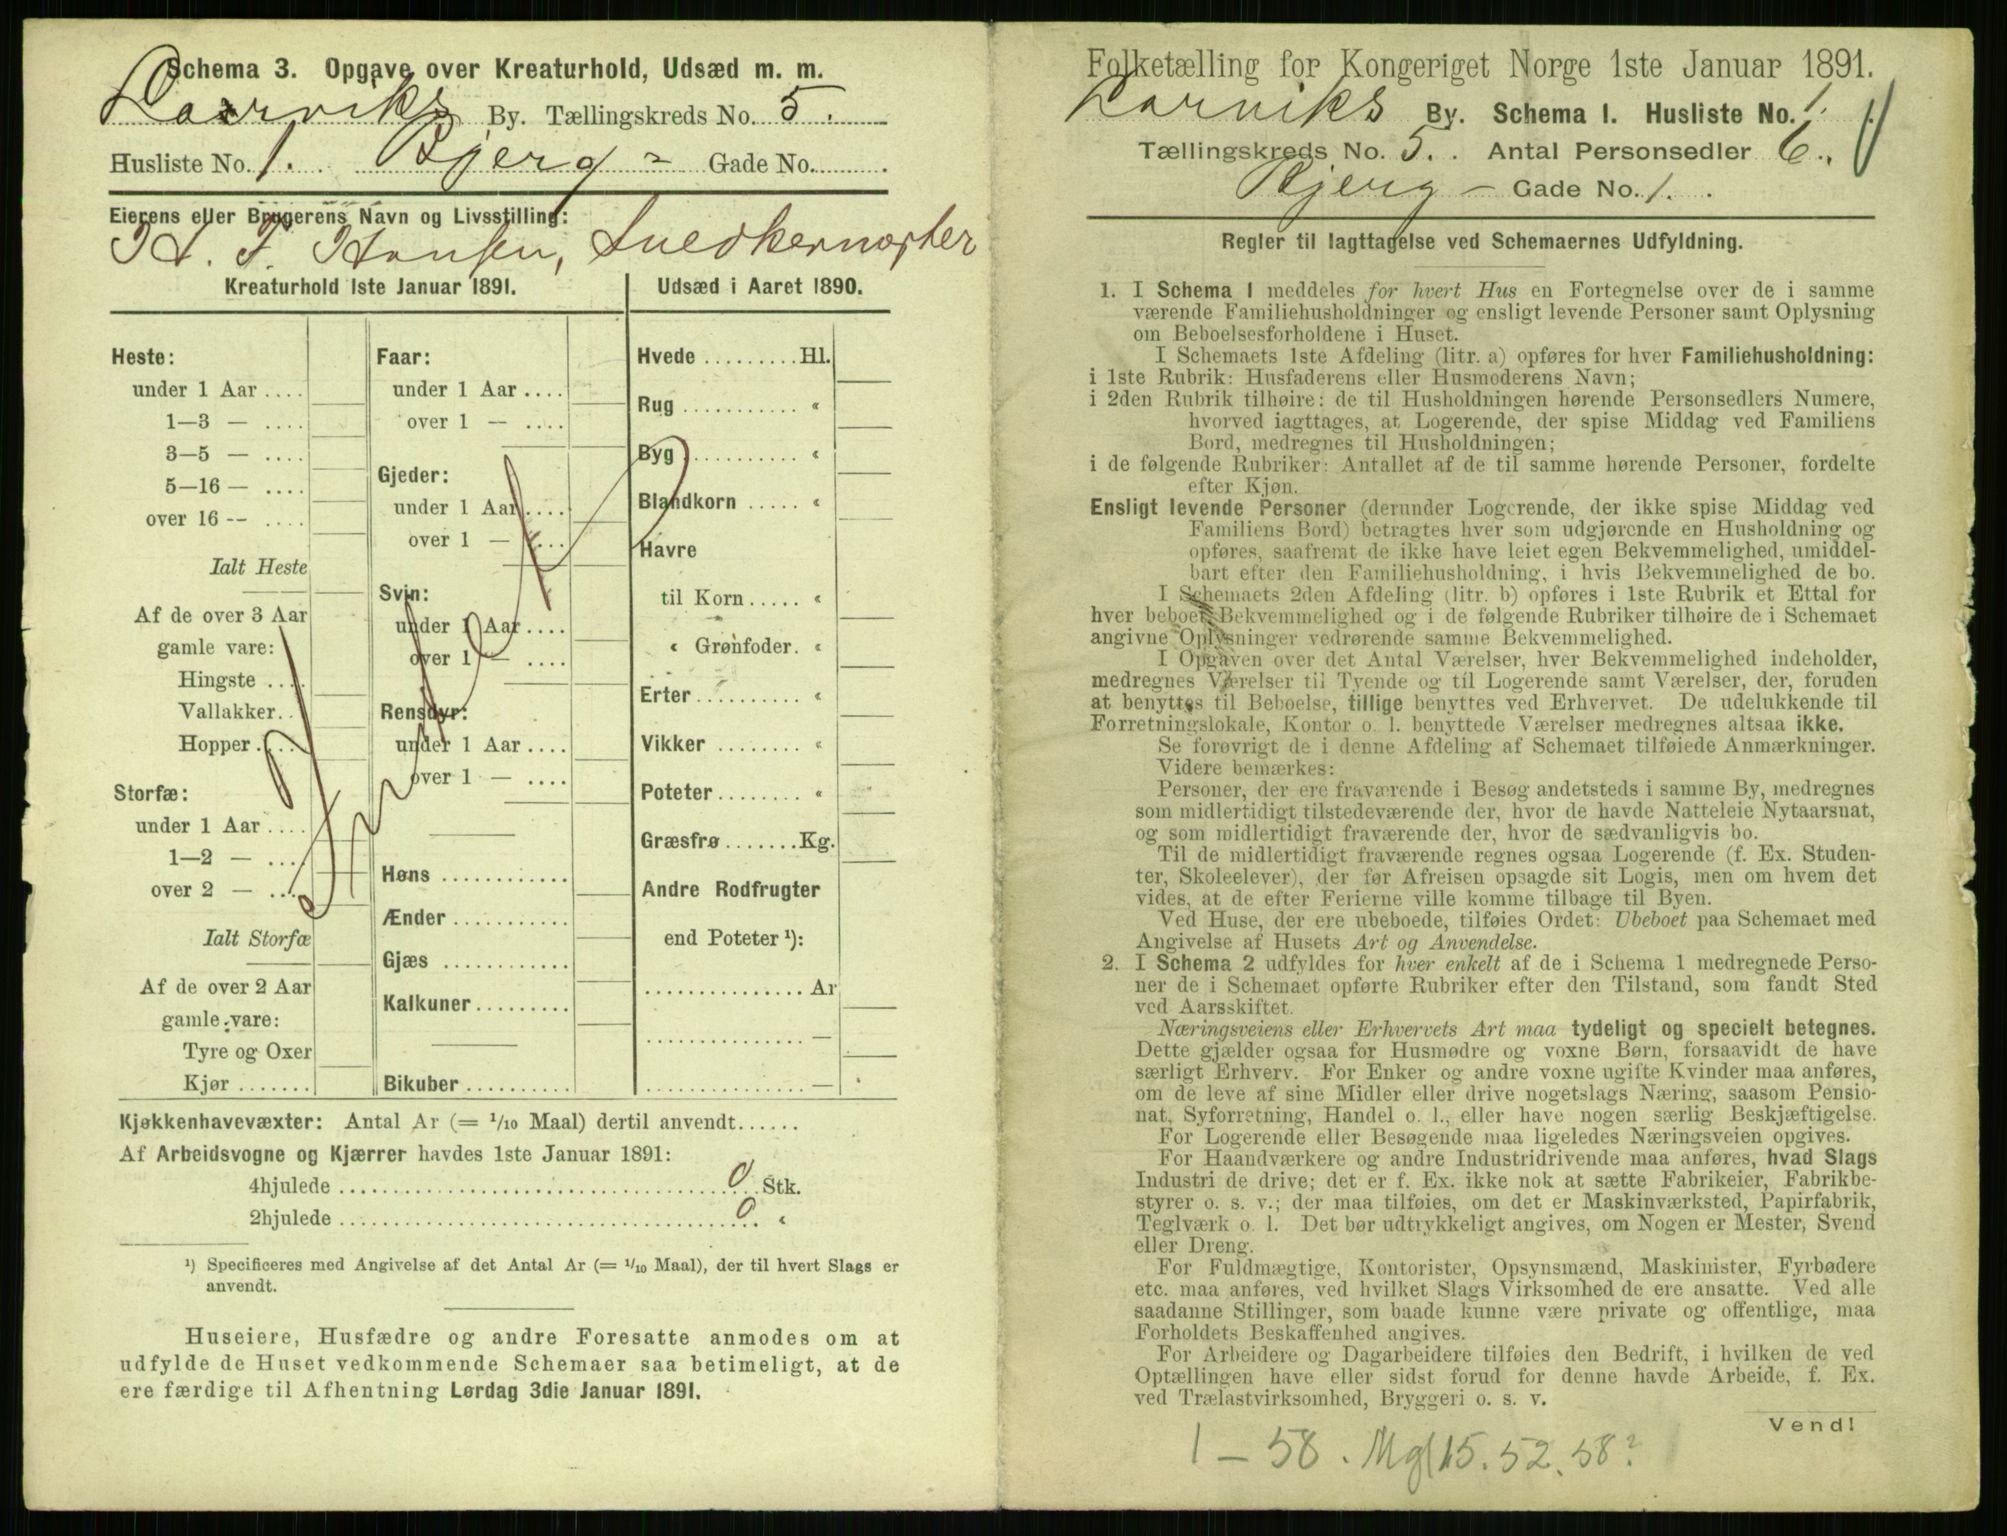 Schema 3. Opgave over Kreaturhold, Udsæd m. m.
Larviks By. Tællingskreds No. 5.
Husliste No. 1. Bjerg - Gade No.
Eierens eller Brugerens Navn og Livsstilling:
H. F. Hansen, Snedkermester
Kreaturhold 1ste Januar 1891.
Heste:
under 1 Aar ....
1—3 — ....
3—5 — ....
5—16 — ....
over 16 -- ....
Ialt Heste
Af de over 3 Aar
gamle vare:
Hingste ....
Vallakker..
Hopper.....
Storfæ:
under 1 Aar ....
1—2 — ....
over 2 — ....
Ialt Storfæ
Af de over 2 Aar
gamle vare:
Tyre og Oxer
Kjør .......
Faar:
under 1 Aar ....
over 1 — ....
Gjeder:
under 1 Aar ....
over 1 — ....
Svin:
under 1 Aar ....
over 1 — ....
Rensdyr:
under 1 Aar ....
over 1 — ....
Høns ............
Ænder ...........
Gjæs ............
Kalkuner.........
Bikuber ..........
Udsæd i Aaret 1890.
Hvede .........Hl.
Rug ........... „
Byg ........... „
Blandkorn ..... „
Havre
til Korn..... „
„ Grønfoder. „
Erter .......... „
Vikker ........ „
Poteter........ „
Græsfrø .......Kg.
Andre Rodfrugter
end Poteter ¹):
............... Ar
............... —
............... —
Kjøkkenhavevæxter: Antal Ar (= 1/10 Maal) dertil anvendt......
Af Arbeidsvogne og Kjærrer havdes 1ste Januar 1891:
4hjulede ........ 0 Stk.
2hjulede ........ 0 „
¹) Specificeres med Angivelse af det Antal Ar (= 1/10 Maal), der til hvert Slags er
anvendt.
Huseiere, Husfædre og andre Foresatte anmodes om at
udfylde de Huset vedkommende Schemaer saa betimeligt, at de
ere færdige til Afhentning Lørdag 3die Januar 1891.
Folketælling for Kongeriget Norge 1ste Januar 1891.
Larviks By. Schema I. Husliste No. 1.
Tællingskreds No. 5. Antal Personsedler 6.
Bjerg - Gade No. 1.
Regler til Iagttagelse ved Schemaernes Udfyldning.
1. I Schema 1 meddeles for hvert Hus en Fortegnelse over de i samme
værende Familiehusholdninger og ensligt levende Personer samt Oplysning
om Beboelsesforholdene i Huset.
I Schemaets 1ste Afdeling (litr. a) opføres for hver Familiehusholdning:
i 1ste Rubrik: Husfaderens eller Husmoderens Navn;
i 2den Rubrik tilhøire: de til Husholdningen hørende Personsedlers Numere,
hvorved iagttages, at Logerende, der spise Middag ved Familiens
Bord, medregnes til Husholdningen;
i de følgende Rubriker: Antallet af de til samme hørende Personer, fordelte
efter Kjøn.
Ensligt levende Personer (derunder Logerende, der ikke spise Middag ved
Familiens Bord) betragtes hver som udgjørende en Husholdning og
opføres, saafremt de ikke have leiet egen Bekvemmelighed, umiddel-
bart efter den Familiehusholdning, i hvis Bekvemmelighed de bo.
I Schemaets 2den Afdeling (litr. b) opføres i 1ste Rubrik et Ettal for
hver beboet Bekvemmelighed og i de følgende Rubriker tilhøire de i Schemaet
angivne Oplysninger vedrørende samme Bekvemmelighed.
I Opgaven over det Antal Værelser, hver Bekvemmelighed indeholder,
medregnes Værelser til Tyende og til Logerende samt Værelser, der, foruden
at benyttes til Beboelse, tillige benyttes ved Erhvervet. De udelukkende til
Forretningslokale, Kontor o. l. benyttede Værelser medregnes altsaa ikke.
Se forøvrigt de i denne Afdeling af Schemaet tilføiede Anmærkninger.
Videre bemærkes:
Personer, der ere fraværende i Besøg andetsteds i samme By, medregnes
som midlertidigt tilstedeværende der, hvor de havde Natteleie Nytaarsnat,
og som midlertidigt fraværende der, hvor de sædvanligvis bo.
Til de midlertidigt fraværende regnes ogsaa Logerende (f. Ex. Studen-
ter, Skoleelever), der før Afreisen opsagde sit Logis, men om hvem det
vides, at de efter Ferierne ville komme tilbage til Byen.
Ved Huse, der ere ubeboede, tilføies Ordet: Ubeboet paa Schemaet med
Angivelse af Husets Art og Anvendelse.
2. I Schema 2 udfyldes for hver enkelt af de i Schema 1 medregnede Perso-
ner de i Schemaet opførte Rubriker efter den Tilstand, som fandt Sted
ved Aarsskiftet.
Næringsveiens eller Erhvervets Art maa tydeligt og specielt betegnes.
Dette gjælder ogsaa for Husmødre og voxne Børn, forsaavidt de have
særligt Erhverv. For Enker og andre voxne ugifte Kvinder maa anføres,
om de leve af sine Midler eller drive nogetslags Næring, saasom Pensio-
nat, Syforretning, Handel o. l., eller have nogen særlig Beskjæftigelse.
For Logerende eller Besøgende maa ligeledes Næringsveien opgives.
For Haandværkere og andre Industridrivende maa anføres, hvad Slags
Industri de drive; det er f. Ex. ikke nok at sætte Fabrikeier, Fabrikbe-
styrer o. s. v.; der maa tilføies, om det er Maskinværksted, Papirfabrik,
Teglværk o. l. Det bør udtrykkeligt angives, om Nogen er Mester, Svend
eller Dreng.
For Fuldmægtige, Kontorister, Opsynsmænd, Maskinister, Fyrbødere
etc. maa anføres, ved hvilket Slags Virksomhed de ere ansatte. Ved alle
saadanne Stillinger, som baade kunne være private og offentlige, maa
Forholdets Beskaffenhed angives.
For Arbeidere og Dagarbeidere tilføies den Bedrift, i hvilken de ved
Optællingen have eller sidst forud for denne havde Arbeide, f. Ex.
ved Trælastvirksomhed, Bryggeri o. s. v.
Vend!
1 – 58. Mgl 15. 52. 58?